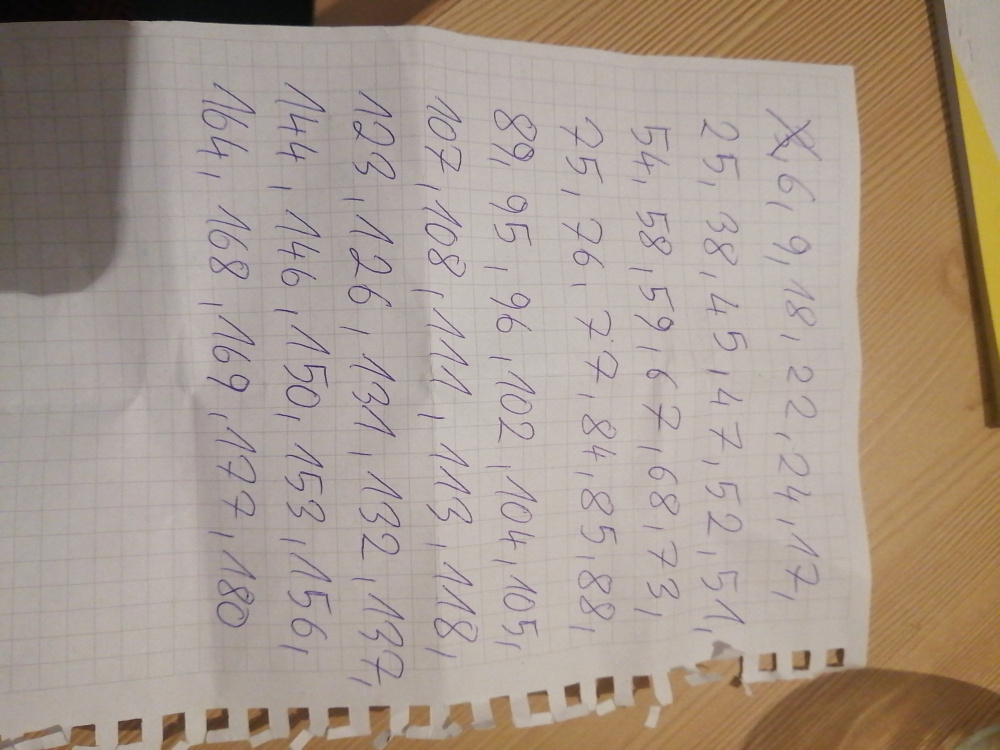 6, 9, 18, 22, 24, 17,
25, 38, 45, 47, 52, 51,
54, 58, 59, 67, 68, 73,
75, 76, 77, 84, 85, 88,
89, 95, 96, 102, 104, 105,
107, 108, 111, 113, 118,
123, 126, 131, 132, 137,
144, 146, 150, 153, 156,
164, 168, 169, 177, 180